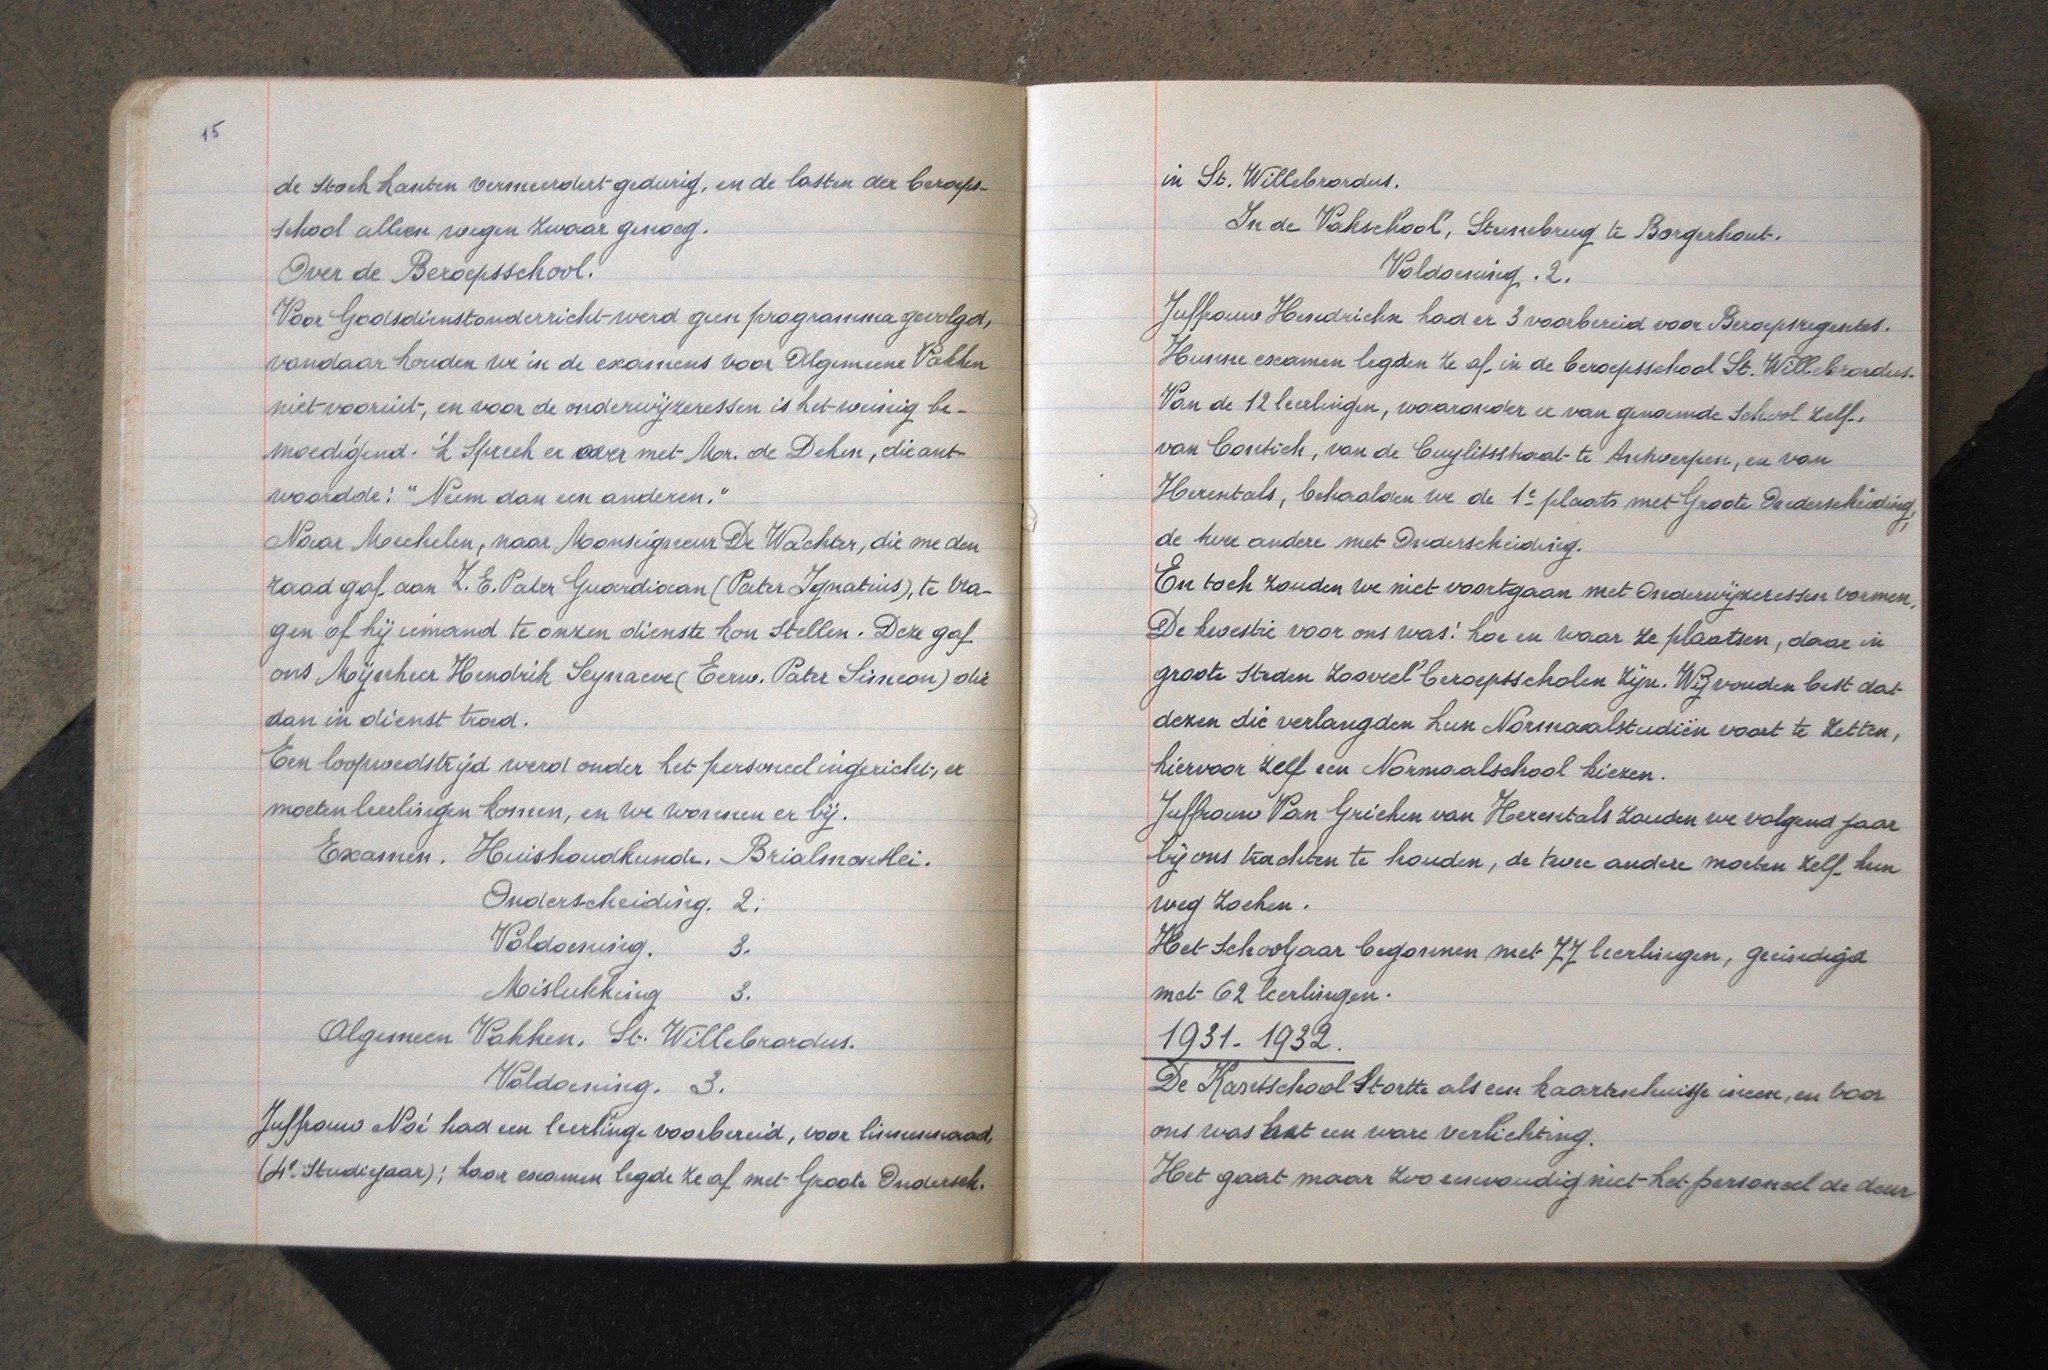 15
de stock kanten vermeerdert gedurig, en de lasten der beroeps-
school alleen wegen zwaar genoeg.
Over de Beroepsschool.
Voor Godsdienstonderricht werd geen programma gevolgd,
vandaar houden we in de examens voor Algemeene Vakken
niet vooruit, en voor de onderwijzeressen is het weinig be-
moedigend. 'k Spreek er over met Mr. de Deken, die ant-
woordde: "Neem dan een anderen."
Naar Mechelen, naar Monseigneur De Wachter, die me den
raad gaf aan Z. E. Pater Guardiaan (Pater Ignatius), te vra-
gen of hij iemand te onzen dienste kon stellen. Deze gaf
ons Mijnheer Hendrik Seynaeve (Eerw. Pater Simeon) die
dan in dienst trad.
Een loopwedstrijd werd onder het personeel ingericht, er
moeten leerlingen komen, en we wonnen er bij.
Examen. Huishoudkunde. Brialmontlei.
Onderscheiding. 2.
Voldoening. 3.
Mislukking 3.
Algemeen Vakken. St. Willebrordus.
Voldoening. 3.
Juffrouw Noë had een leerlinge voorbereid, voor linnennaad,
(4e Studiejaar); haar examen legde ze af met Groote Ondersch.
in St. Willebrordus.
In de "Vakschool", Stenebrug te Borgerhout.
Voldoening. 2.
Juffrouw Hendrickx had er 3 voorbereid voor Beroepsregentes.
Hunne examen legden ze af in de beroepsschool St. Willebrordus.
Van de 12 leerlingen, waaronder er van genoemde School zelf,
van Contich, van de Cuylitsstraat te Antwerpen, en van
Herentals, behaalden we de 1e plaats met Groote Onderscheiding,
de twee andere met Onderscheiding.
En toch zouden we niet voortgaan met Onderwijzeressen vormen.
De kwestie voor ons was: hoe en waar ze plaatsen, daar in
groote steden zooveel beroepsscholen zijn. Wij vonden best dat
dezen die verlangden hun Normaalstudiën voort te zetten,
hiervoor zelf een Normaalschool kiezen.
Juffrouw Van Grieken van Herentals zouden we volgend jaar
bij ons trachten te houden, de twee andere moeten zelf hun
weg zoeken.
Het Schooljaar begonnen met 77 leerlingen, geëindigd
met 62 leerlingen.
1931 - 1932.
De Kantschool Stortte als een kaartenhuisje ineen, en voor
ons was het een ware verlichting.
Het gaat maar zoo eenvoudig niet het personeel de deur